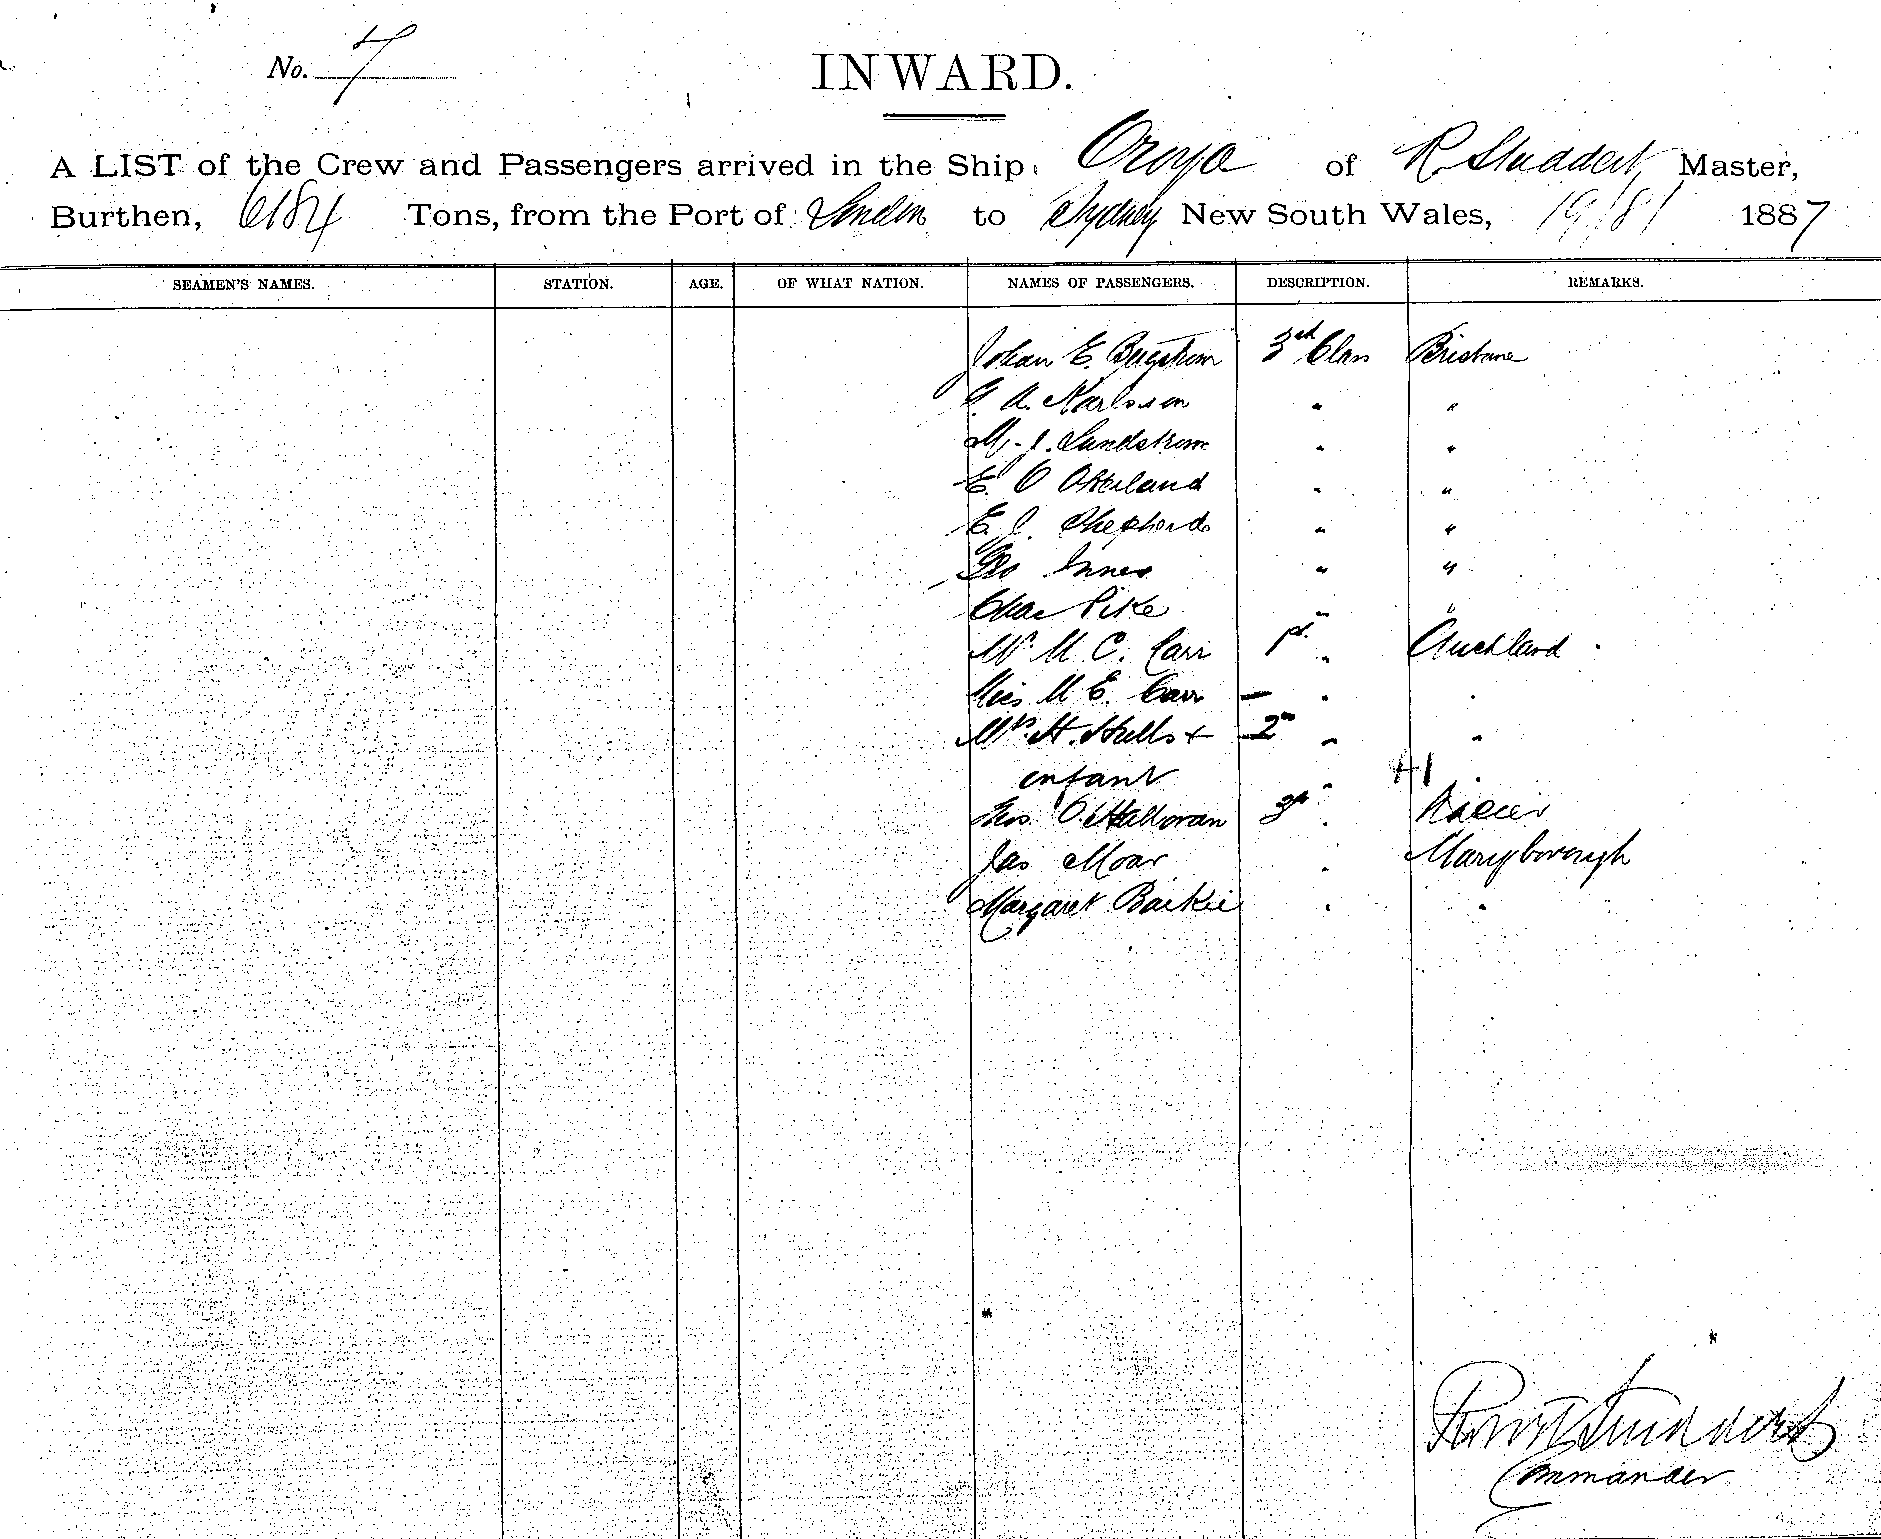 No. 7
INWARD.
A LIST of the Crew and Passengers arrived in the Ship Oroya of R Studdert, Master,
Burthen, 6184 Tons, from the Port of London to Sydney New South Wales, 19/8/ 1887
SEAMEN'S NAMES. STATION. AGE. OF WHAT NATION. NAMES OF PASSENGERS. DESCRIPTION. REMARKS.
Johan E. 3rd Class Brisbane
A. Karlsson " "
M. J. Sundstrom " "
E. O " "
E. J. Shepherd " "
Geo Innes " "
Chas Pike " "
M. C. Carr 1st " Auckland
Miss M E. Carr " "
Mrs H. Hulls + 2nd " "
infant " "
O'Halloran 3rd "
Jas Moar " Maryborough
Margaret Baikie " "
Studdert
Commander